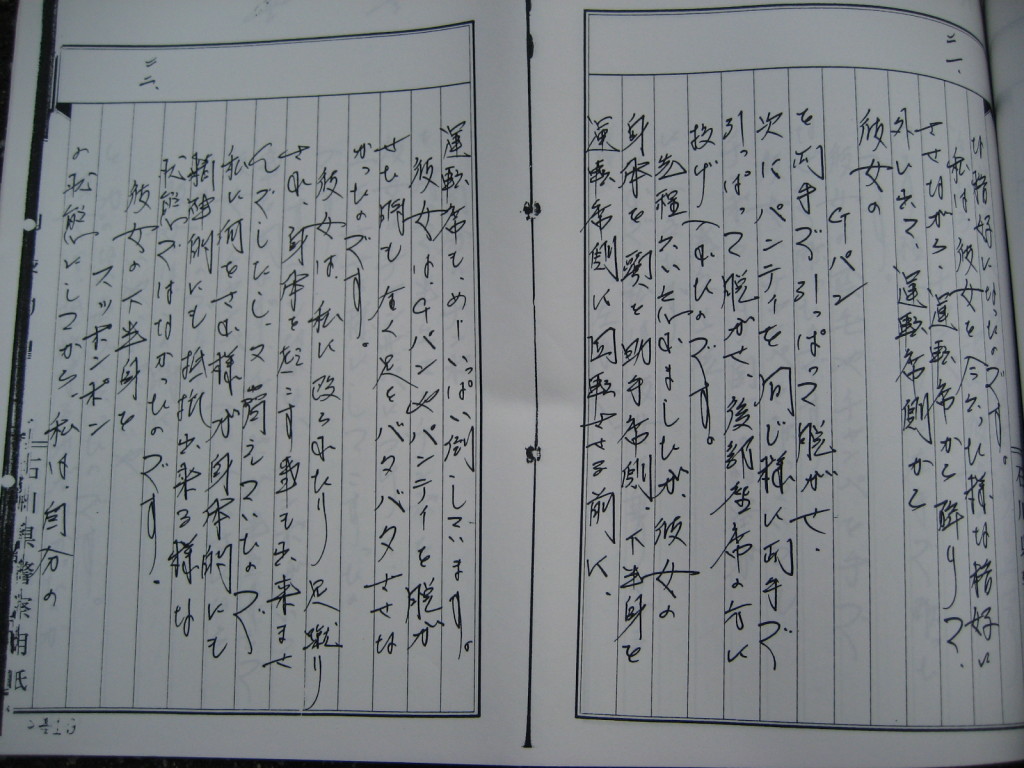 二一、
な格好になったのです。
私は、彼女を今言った様な格好に
させながら、運転席から降りて、
外に出て、運転席側から
彼女の
Gパン
を両手で引っぱって脱がせ、
次にパンティを同じ様に両手で
引っぱって脱がせ、後部座席の方に
投げ入れたのです。
先程言い忘れましたが、彼女の
身体を頭を助手席側、下半身を
運転席側に回転させる前に、
二二、
運転席も、めーいっぱい倒しています。
彼女は、Gパンやパンティを脱が
せる間も全く足をバタバタさせな
かったのです。
彼女は、私に殴られたり足蹴り
され、身体を起こす事も出来ませ
んでしたし、又、脅えていたので
私に何をされ様が身体的にも
精神的にも抵抗出来る様な
状態ではなかったのです。
彼女の下半身を
スッポンポン
の状態にしてから、私は、自分の
石川県警察